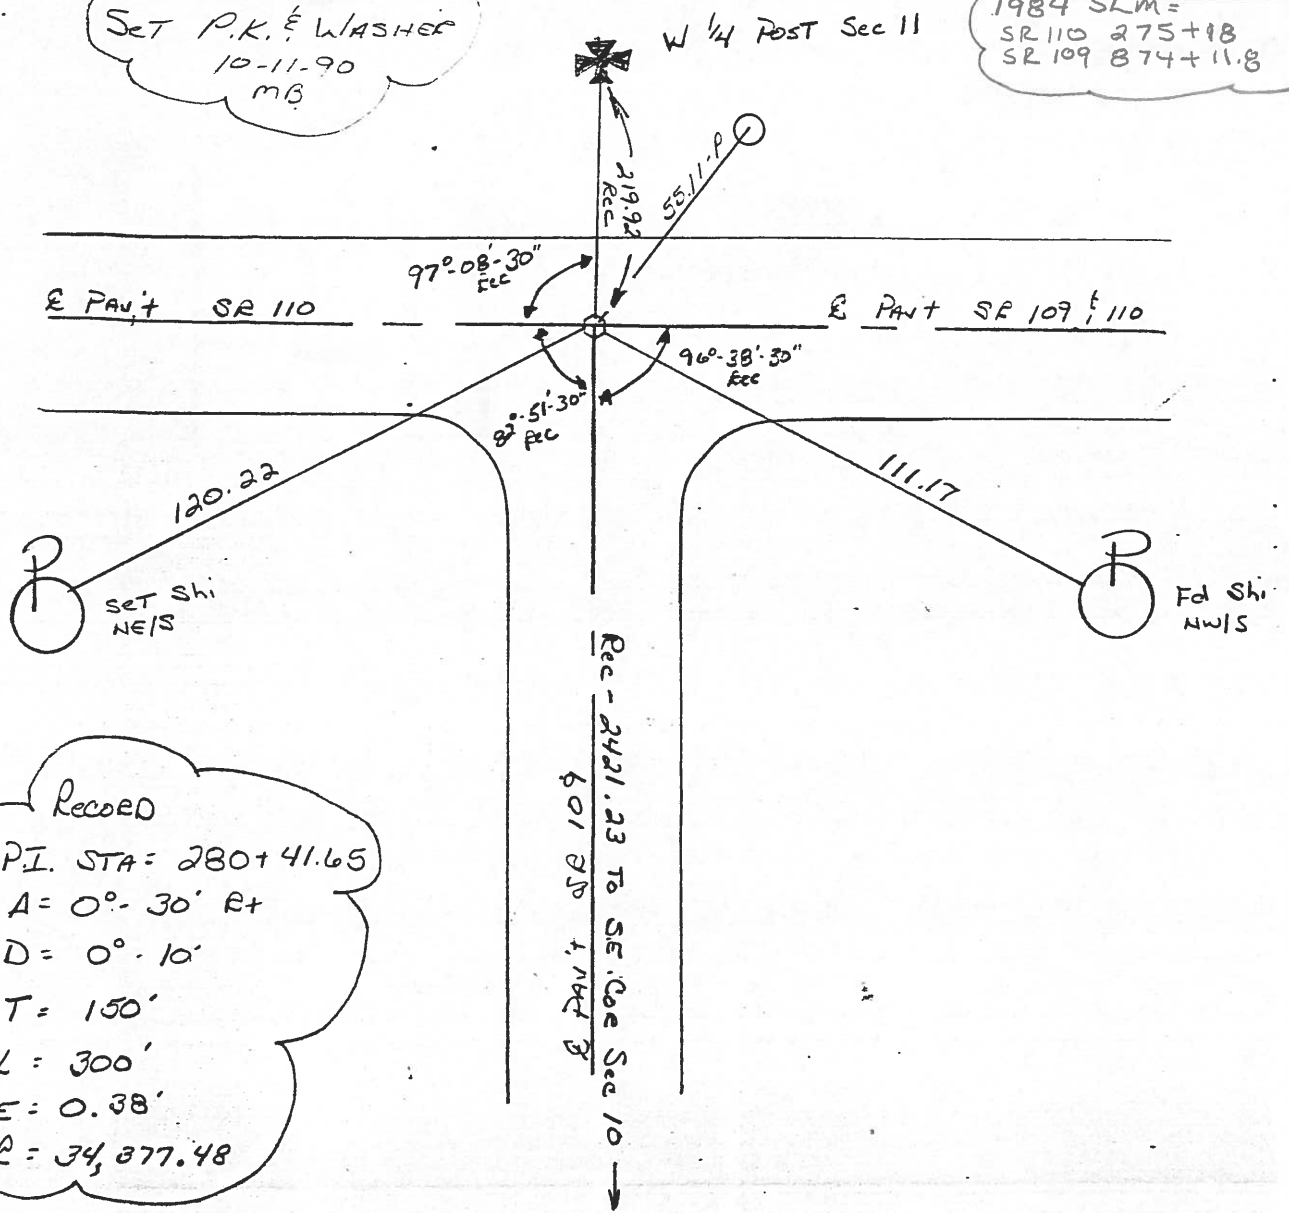 SET P.K. & WASHER
10-11-90
MB
W 1/4 POST Sec 11
1984 SLM =
SR 110 275+18
SR 109 874+11.8
219.92
Rec
55.11-P
97°-08'-30"
Rec
℄ PAV't SR 110
℄ PAV't SR 109 & 110
96°-38'-30"
Rec
82°-51'-30"
Rec
120.22
111.17
SET Shi
NE/S
Fd Shi
NW/S
Rec - 2421.23 To S.E. Cor Sec 10
℄ PAV't SR 109
RECORD
P.I. STA = 280+41.65
Δ = 0°-30' Rt
D = 0°-10'
T = 150'
L = 300'
E = 0.38'
R = 34,377.48